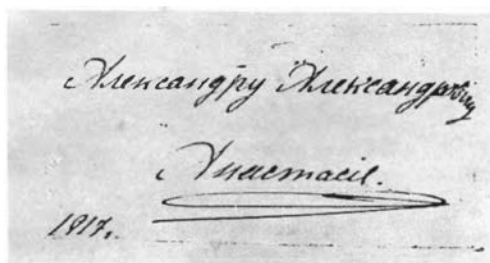 Александру Александровичу
Анастасія.
1917.